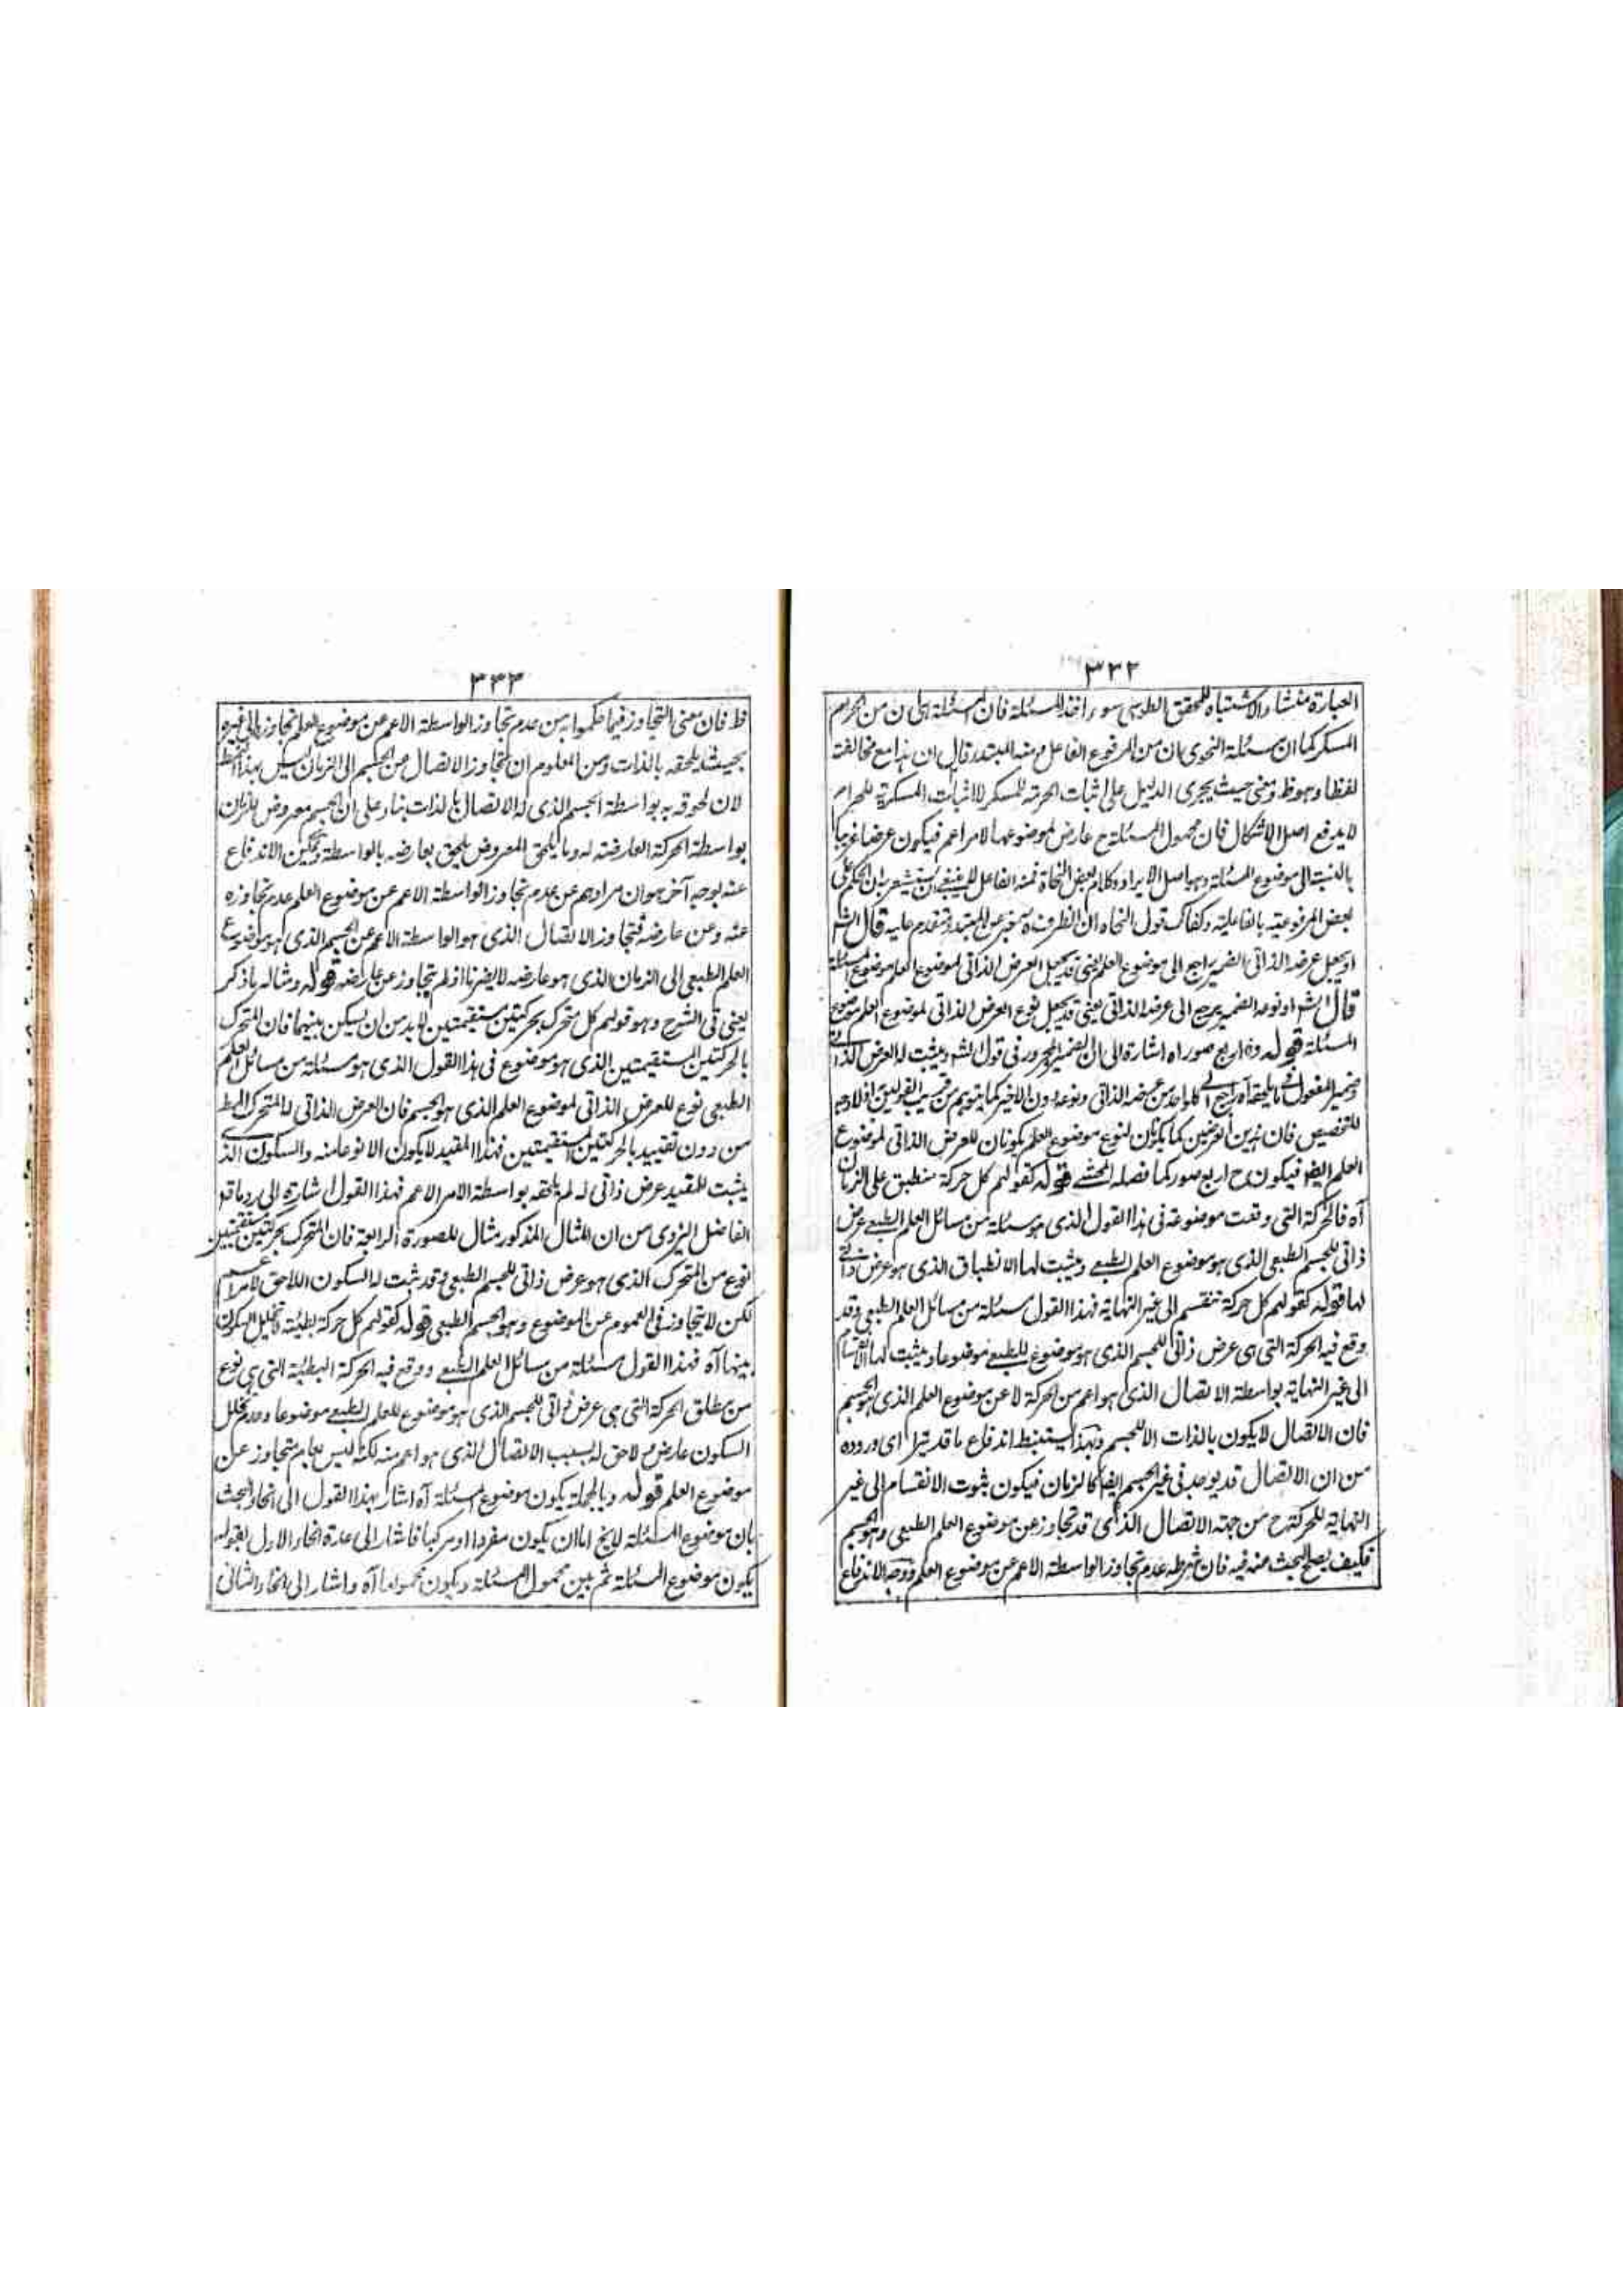 ٣٣٢
العبارة منشاء الاشتباه للمحقق الطوسى سوء اخذ المسئلة فان المسئلة ان من الحرام
المسكر كما ان مسئلة النحوى ان من المرفوع الفاعل ومنه المبتدء قال ان هذا مع مخالفته
لفظا وهو ظ ومعنى حيث يجرى الدليل على اثبات الحرمة للمسكر لا اثبات المسكرية للحرام
لا يدفع اصل الاشكال فان محمول المسئلة ح عارض لموضوعها لامر اعم فيكون عرضا غريبا
بالنسبة الى موضوع المسئلة وهو اصل الايراد وكلام بعض النحاة فمنه الفاعل ينبغى ان يستشعر بان الحكم على
بعض المرفوعية بالفاعلية وكذلك قول النحاة ان الظرف خبر عن المبتدء متقدم عليه قال الش
او يجعل عرضه الذاتى الضمير راجع الى موضوع العلم يعنى قد يجعل العرض الذاتى لموضوع العلم موضوع المسئلة
قال الش او نوعه الضمير يرجع الى عرضه الذاتى يعنى قد يجعل نوع العرض الذاتى لموضوع العلم موضوع
المسئلة قوله وه اربع صور اه اشارة الى ان الضمير المجرور فى قول الش ويثبت له العرض الذاتى
وضمير المفعول فى ما يلحقه آه راجع الى كل واحد من عرضه الذاتى ونوعه دون الاخير كما يتوهم من قرب القولين اذ لا وجه
للتخصيص فان هذين العرضين كما يكونان لنوع موضوع العلم يكونان للعرض الذاتى لموضوع
العلم ايضا فيكون ح اربع صور كما فصله المحشى قوله كقولهم كل حركة منطبق على الزمان
آه فالحركة التى وقعت موضوعة فى هذا القول الذى هو مسئلة من مسائل العلم الطبعى عرض
ذاتى للجسم الطبعى الذى هو موضوع العلم الطبعى ويثبت لها الانطباق الذى هو عرض ذاتى
لها قوله كقولهم كل حركة تنقسم الى غير النهاية فهذا القول مسئلة من مسائل العلم الطبعى وقد
وقع فيه الحركة التى هى عرض ذاتى للجسم الذى هو موضوع للطبعى موضوعا ويثبت لها الانقسام
الى غير النهاية بواسطة الاتصال الذى هو اعم من الحركة لا عن موضوع العلم الذى هو الجسم
فان الاتصال لا يكون بالذات الا للجسم وبهذا يستنبط اندفاع ما قد يترا اى وروده
من ان الاتصال قد يوجد فى غير الجسم ايضا كالزمان فيكون ثبوت الانقسام الى غير
النهاية للحركة ح من جهة الاتصال الذى قد تجاوز عن موضوع العلم الطبيعى وهو الجسم
فكيف يصلح البحث عنه فيه فان شرطه عدم تجاوز الواسطة الاعم عن موضوع العلم ووجه الاندفاع
٣٣٣
ظ فان معنى التجاوز فيما حكموا به من عدم تجاوز الواسطة الاعم عن موضوع العلم تجاوزها الى غيره
بحيث يلحقه بالذات ومن المعلوم ان تجاوز الاتصال من الجسم الى الزمان ليس بهذا النمط
لان لحوقه به بواسطة الجسم الذى له الاتصال بالذات بناء على ان الجسم معروض للزمان
بواسطة الحركة العارضة له وما يلحق المعروض يلحق بعارضه بالواسطة ويمكن الاندفاع
عنه بوجه آخر هو ان مرادهم عن عدم تجاوز الواسطة الاعم عن موضوع العلم عدم تجاوزه
عنه وعن عارضه فتجاوز الاتصال الذى هو الواسطة الاعم عن الجسم الذى هو موضوع
العلم الطبعى الى الزمان الذى هو عارضه لا يضرنا اذ لم يتجاوز عن عارضه قوله ومثاله ما ذكر
يعنى فى الشرح وهو قولهم كل متحرك بحركتين مستقيمتين لا بد من ان يسكن بينهما فان المتحرك
بالحركتين المستقيمتين الذى هو موضوع فى هذا القول الذى هو مسئلة من مسائل العلم
الطبعى نوع للعرض الذاتى لموضوع العلم الذى هو الجسم فان العرض الذاتى له المتحرك فقط
من دون تقييد بالحركتين المستقيمتين فهذا المقيد لا يكون الا نوعا منه والسكون الذى
يثبت للمقيد عرض ذاتى له لم يلحقه بواسطة الامر الاعم فهذا القول اشارة الى رد ما قال
الفاضل اليزدى من ان المثال المذكور مثال للصورة الرابعة فان المتحرك بحركتين مستقيمتين
نوع من المتحرك الذى هو عرض ذاتى للجسم الطبعى وقد ثبت له السكون اللاحق لامر اعم
لكن لا يتجاوز فى العموم عن الموضوع وهو الجسم الطبعى قوله كقولهم كل حركة بطيئة لا تخلل السكون
بينها آه فهذا القول مسئلة من مسائل العلم الطبعى ووقع فيه الحركة البطيئة التى هى نوع
من مطلق الحركة التى هى عرض ذاتى للجسم الذى هو موضوع للعلم الطبعى موضوعا وعدم تخلل
السكون عارض لاحق له بسبب الاتصال الذى هو اعم منه لكنه ليس بعام متجاوز عن
موضوع العلم قوله وبالجملة يكون موضوع المسئلة آه اشار بهذا القول الى انحاء البحث
بان موضوع المسئلة لا يخ اما ان يكون مفردا او مركبا فاشار الى عدة انحاء الاول بقوله
يكون موضوع المسئلة ثم بين محمول المسئلة ويكون محمولها آه واشار الى انحاء الثانى